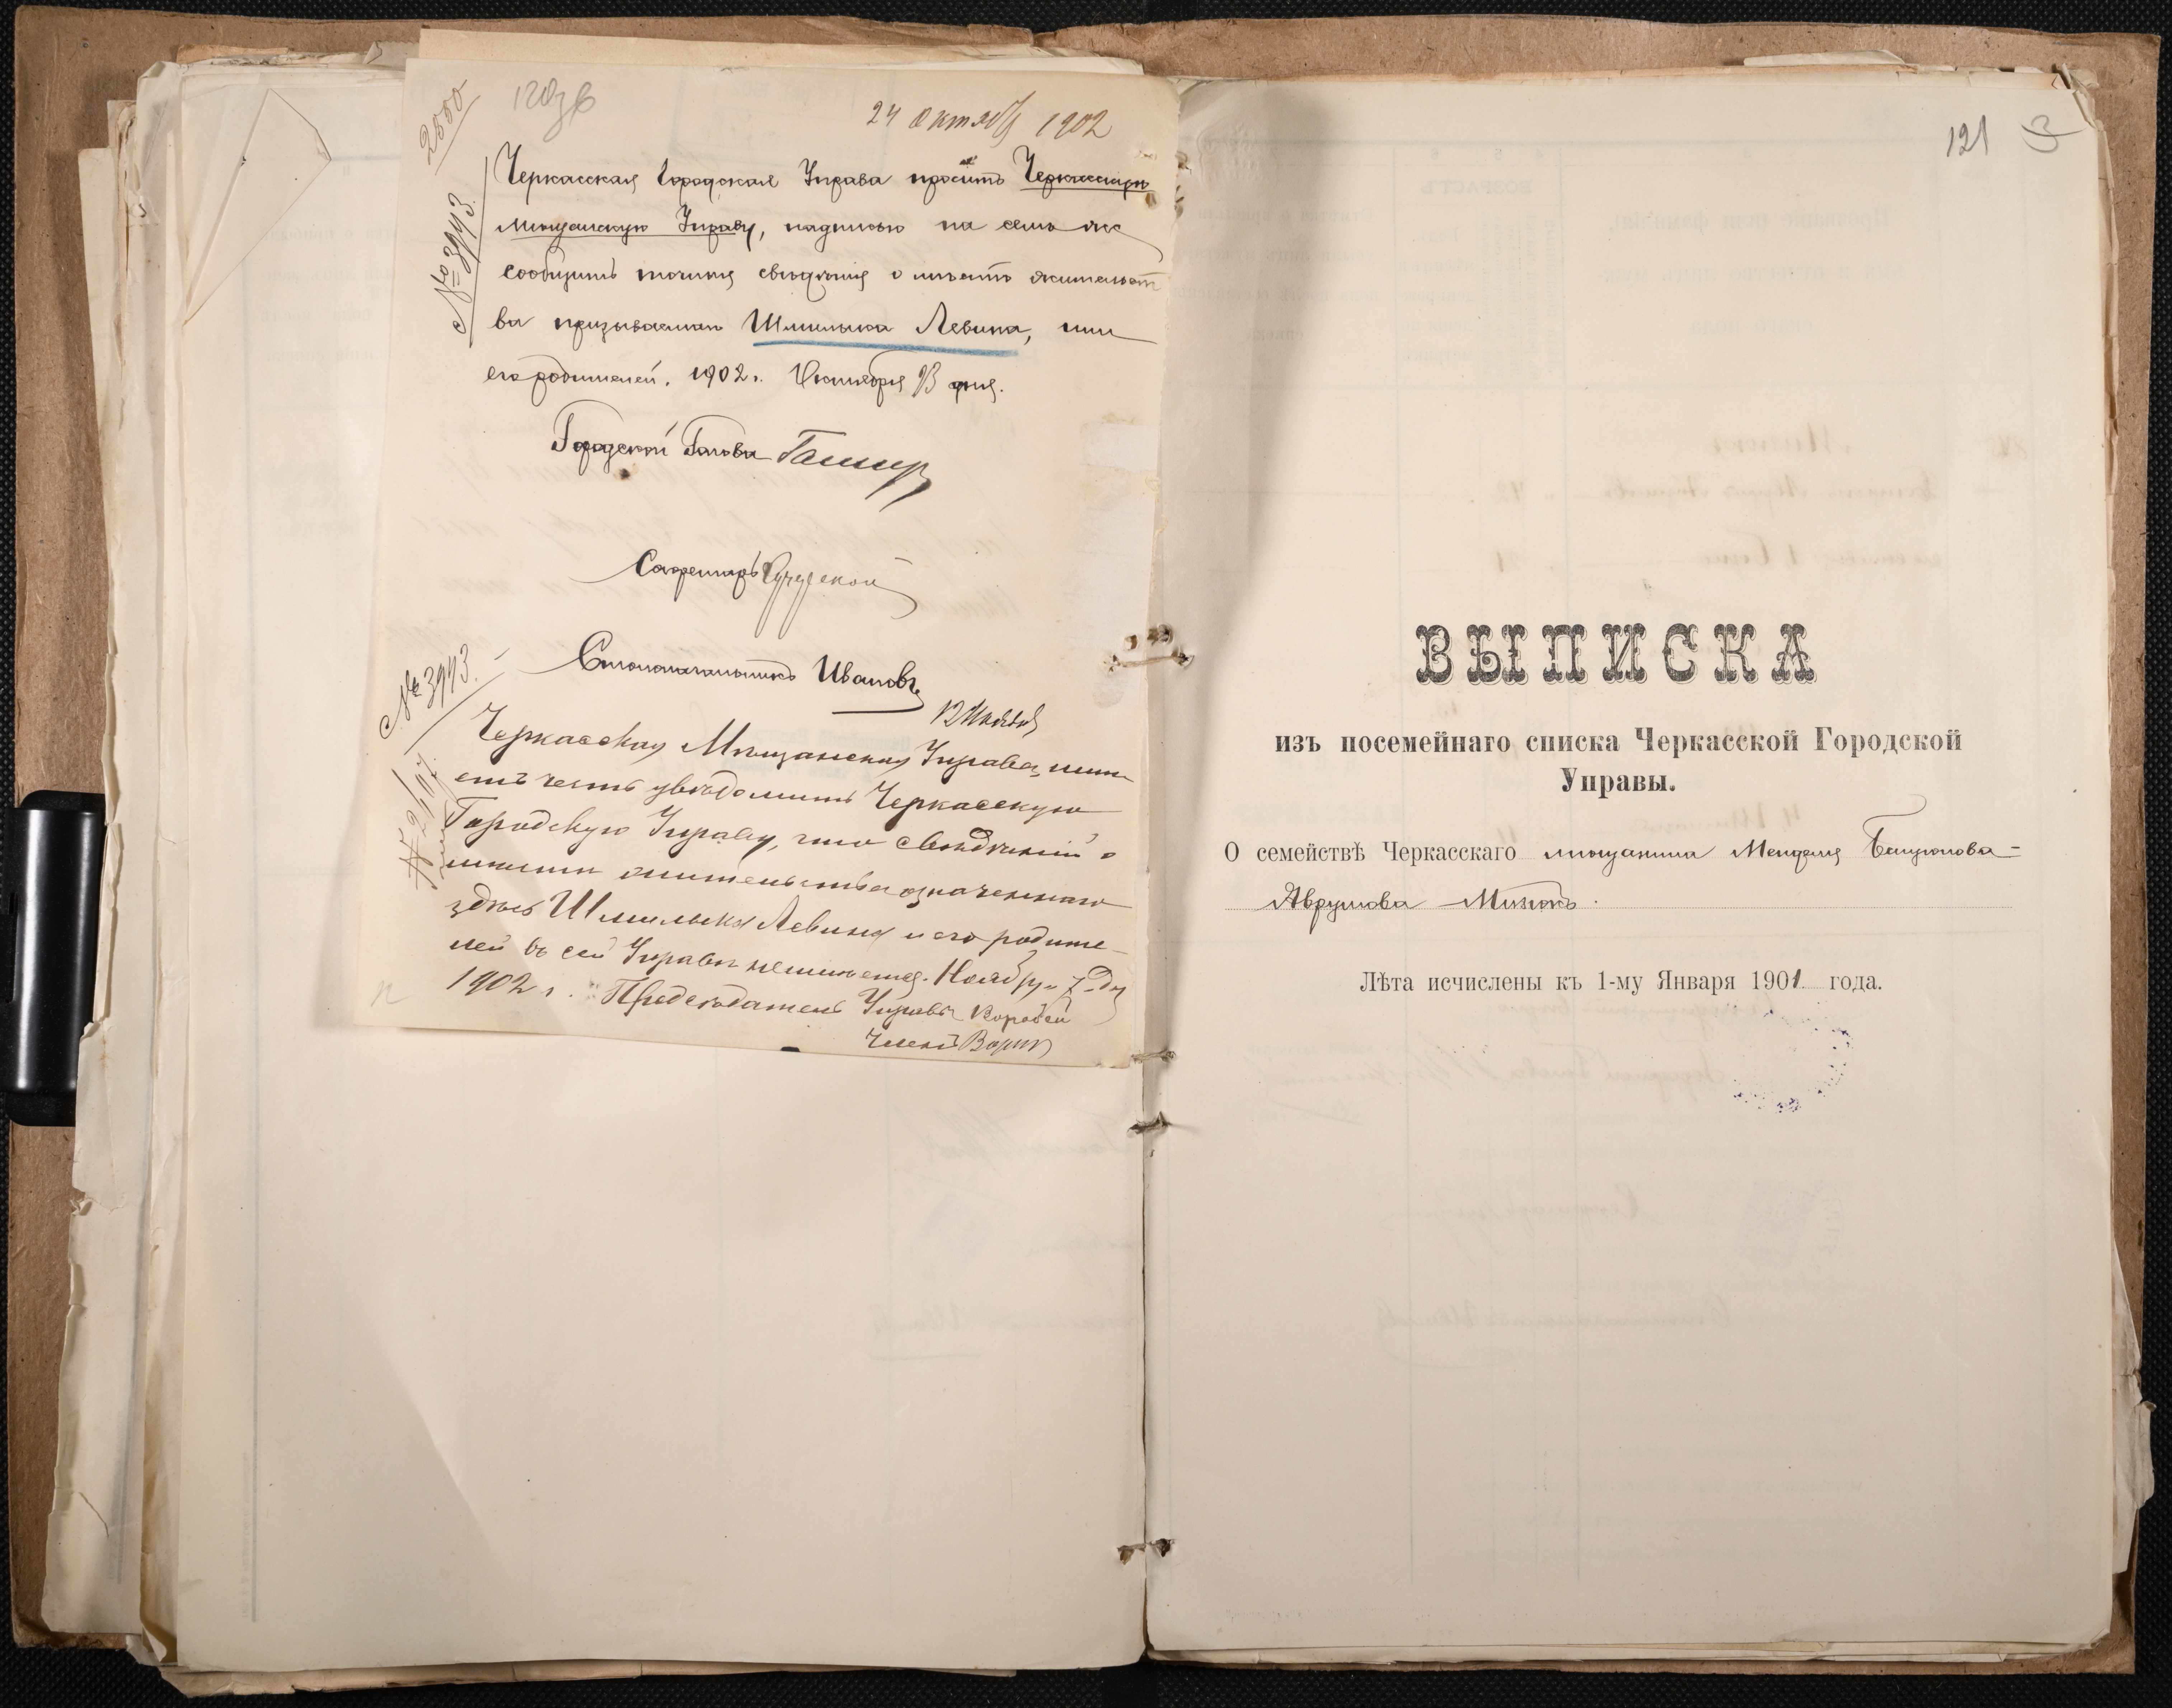 2550
24 октяб 1902
№ 3943
Черкасская Городская Управа проситъ Черкасскую
Мѣщанскую Управу, надписью на семъ же
сообщить точныя свѣдѣнія о мѣстѣ жительст
ва призываемаго Шмилыка Левина, или
его родителей. 1902 г. Октября 23 дня.
Городской Голова
Секретарь
Столоначальникъ Ивановъ
№ 3943.
Черкасская Мѣщанская Управа, имѣ
етъ честь увѣдомить Черкасскую
Городскую Управу, что свѣдѣній о
мѣстѣ жительства означеннаго
здѣсь Шмилыка Левина и его родите-
лей въ сей Управѣ не имѣется. Ноября 7 дня
1902 г. Предсѣдатель Управы
Членъ
121
ВЫПИСКА
изъ посемейнаго списка Черкасской Городской
Управы.
О семействѣ Черкасскаго мѣщанина Менделя
Аврумова
Лѣта исчислены къ 1-му Января 1901 года.